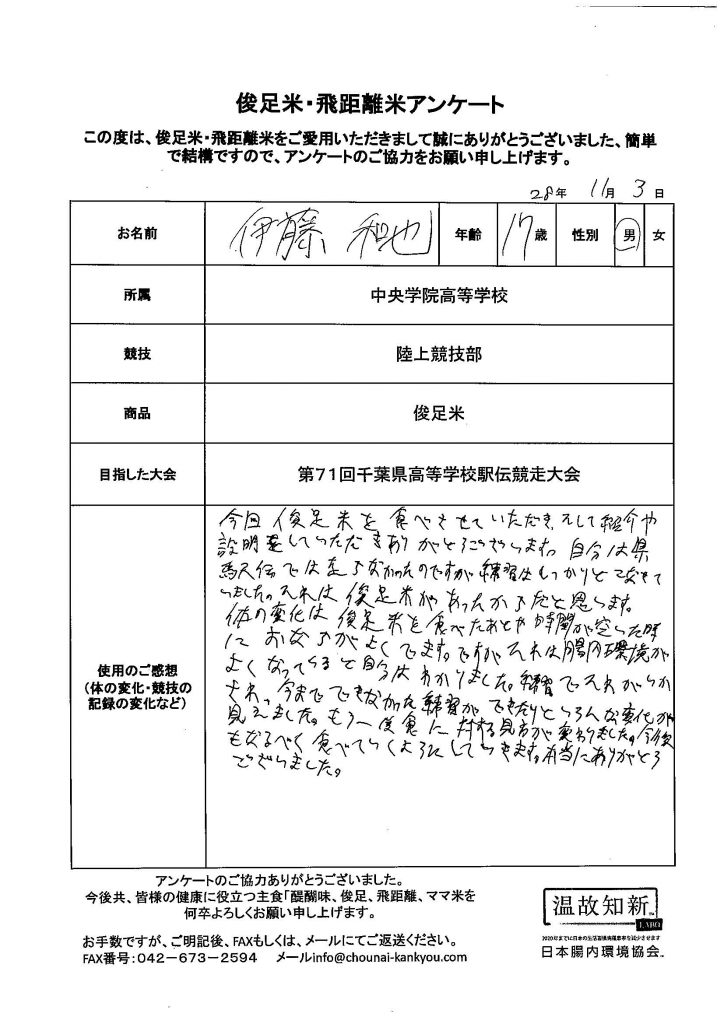 俊足米・飛距離米アンケート
この度は、俊足米・飛距離米をご愛用いただきまして誠にありがとうございました、簡単
で結構ですので、アンケートのご協力をお願い申し上げます。
28年 11月 3日
お名前 伊藤 和也 年齢 17歳 性別 男 女
所属 中央学院高等学校
競技 陸上競技部
商品 俊足米
目指した大会 第71回千葉県高等学校駅伝競走大会
使用のご感想
(体の変化・競技の
記録の変化など)
今回俊足米を食べさせていただき、そして紹介や
説明をしていただきありがとうございます。自分は県
駅伝では走れなかったのですが練習はしっかりとこなせて
いました。それは俊足米があったからだと思います。
体の変化は俊足米を食べたあとや時間が空いた時
におならがよくでます。ですがそれは腸内環境が
よくなっていると自分はわかりました。練習でそれがいか
され、今までできなかった練習ができたりといろんな変化が
見えました。もう一度食に対する見方が変わりました。今後
もなるべく食べていくようにしていきます。本当にありがとう
ございました。
アンケートのご協力ありがとうございました。
今後共、皆様の健康に役立つ主食「醍醐味、俊足、飛距離、ママ米を
何卒よろしくお願い申し上げます。
お手数ですが、ご明記後、FAXもしくは、メールにてご返送ください。
FAX番号:042-673-2594 メールinfo@chounai-kankyou.com
温故知新
LABO
2020年までに日本の生活習慣病罹患率を減少させます
日本腸内環境協会